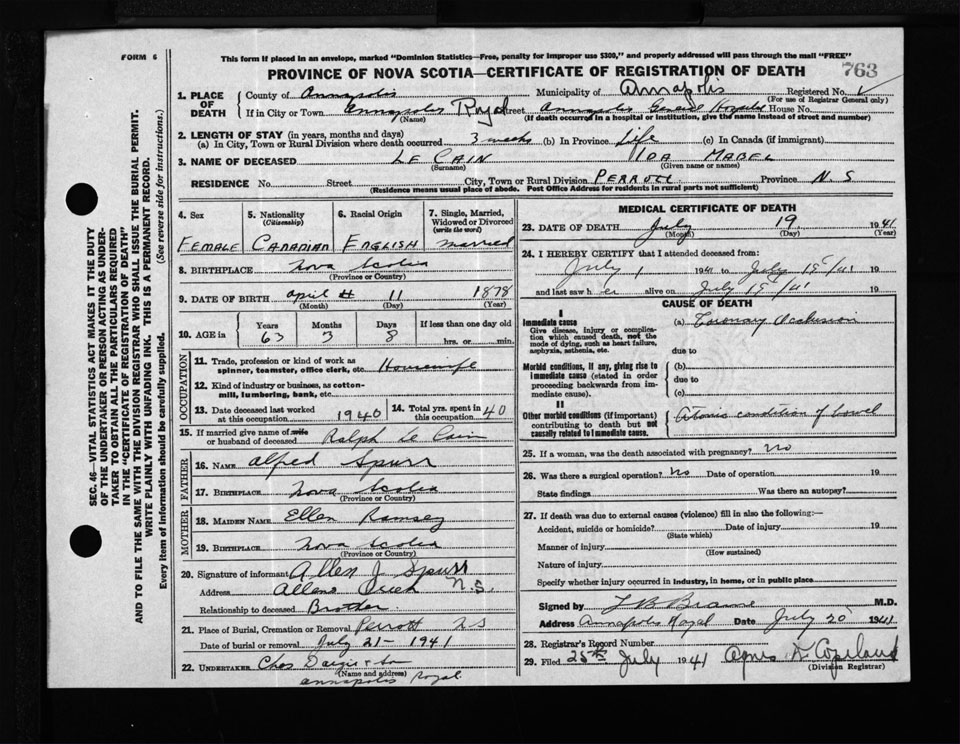 FORM 6
This form if placed in an envelope, marked "Dominion Statistics—Free, penalty for improper use $300," and properly addressed will pass through the mail "FREE"
PROVINCE OF NOVA SCOTIA—CERTIFICATE OF REGISTRATION OF DEATH
763
1. PLACE OF DEATH
County of Annapolis Municipality of Annapolis Registered No.
(For use of Registrar General only)
If in City or Town Annapolis Royal Street Annapolis General Hospital House No.
(Name) (If death occurred in a hospital or institution, give the name instead of street and number)
2. LENGTH OF STAY (in years, months and days)
(a) In City, Town or Rural Division where death occurred 3 weeks (b) In Province Life (c) In Canada (if immigrant)
3. NAME OF DECEASED LE CAIN IDA MABEL
(Surname) (Given name or names)
RESIDENCE No. Street City, Town or Rural Division PERROTT Province N. S
(Residence means usual place of abode. Post Office Address for residents in rural parts not sufficient)
4. Sex 5. Nationality (Citizenship) 6. Racial Origin 7. Single, Married, Widowed or Divorced (write the word)
FEMALE CANADIAN ENGLISH married
8. BIRTHPLACE Nova Scotia
(Province or Country)
9. DATE OF BIRTH April 11 1878
(Month) (Day) (Year)
10. AGE in Years Months Days If less than one day old
63 3 8 hrs. or min.
OCCUPATION
11. Trade, profession or kind of work as spinner, teamster, office clerk, etc. Housewife
12. Kind of industry or business, as cotton-mill, lumbering, bank, etc.
13. Date deceased last worked at this occupation 1940 14. Total yrs. spent in this occupation 40
15. If married give name of wife or husband of deceased Ralph Le Cain
FATHER
16. NAME Alfred Spurr
17. BIRTHPLACE Nova Scotia
(Province or Country)
MOTHER
18. MAIDEN NAME Ellen Ramsey
19. BIRTHPLACE Nova Scotia
(Province or Country)
20. Signature of informant Allen J Spurr
Address Allens N.S.
Relationship to deceased Brother
21. Place of Burial, Cremation or Removal Perrott NS
Date of burial or removal July 21 - 1941
22. UNDERTAKER Chas Dargie & Son
(Name and address)
Annapolis Royal
MEDICAL CERTIFICATE OF DEATH
23. DATE OF DEATH July 19 1941
(Month) (Day) (Year)
24. I HEREBY CERTIFY that I attended deceased from:
July 1 1941 to July 19/41 19
and last saw her alive on July 19/41 19
CAUSE OF DEATH
I
Immediate cause (a) Coronary Occlusion
Give disease, injury or complication which caused death, not the mode of dying, such as heart failure, asphyxia, asthenia, etc.
due to
Morbid conditions, if any, giving rise to immediate cause (stated in order proceeding backwards from immediate cause).
(b)
due to
(c)
II
Other morbid conditions (if important) contributing to death but not causally related to immediate cause.
Atonic condition of bowel
25. If a woman, was the death associated with pregnancy? no
26. Was there a surgical operation? No Date of operation 19
State findings Was there an autopsy?
27. If death was due to external causes (violence) fill in also the following:—
Accident, suicide or homicide? Date of injury 19
(State which)
Manner of injury
(How sustained)
Nature of injury
Specify whether injury occurred in industry, in home, or in public place
Signed by M.D.
Address Annapolis Royal Date July 20 1941
28. Registrar's Record Number
29. Filed 25th July 1941 Agnes Copeland
(Division Registrar)
SEC. 46—VITAL STATISTICS ACT MAKES IT THE DUTY
OF THE UNDERTAKER OR PERSON ACTING AS UNDER-
TAKER TO OBTAIN ALL THE PARTICULARS REQUIRED
IN THE "CERTIFICATE OF REGISTRATION OF DEATH"
AND TO FILE THE SAME WITH THE DIVISION REGISTRAR WHO SHALL ISSUE THE BURIAL PERMIT.
WRITE PLAINLY WITH UNFADING INK. THIS IS A PERMANENT RECORD.
Every item of information should be carefully supplied. (See reverse side for instructions.)